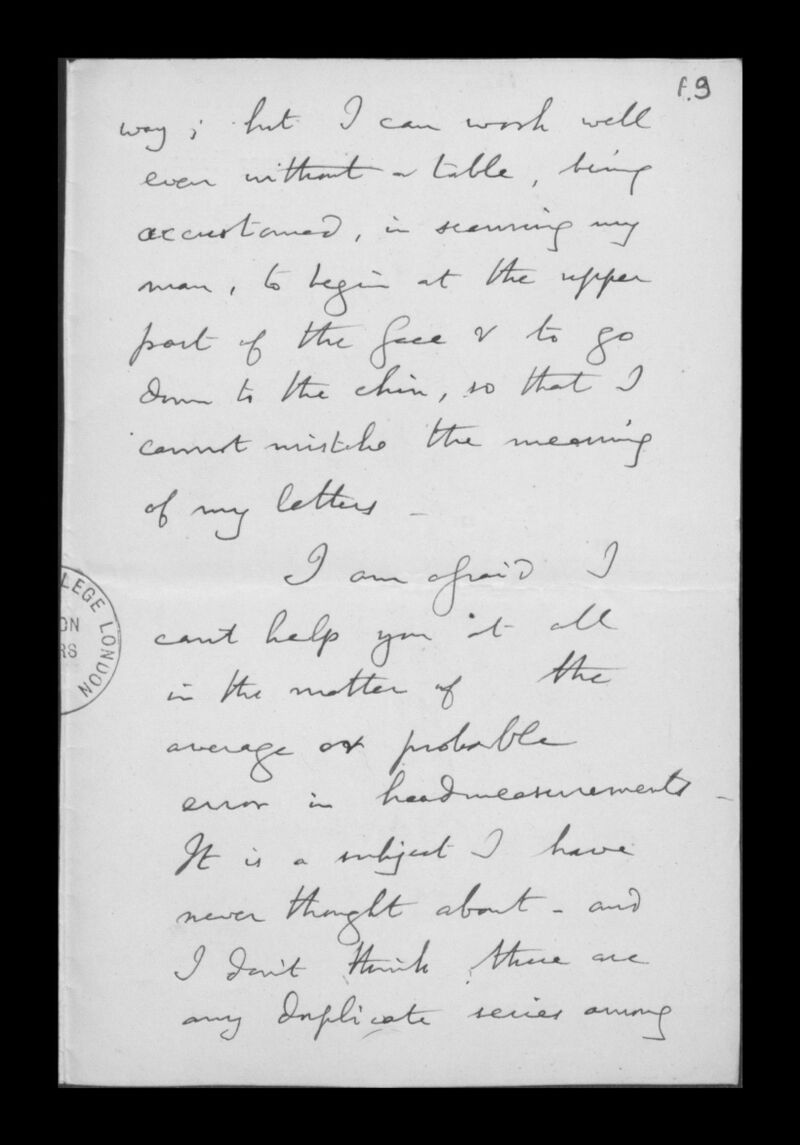 f.9
way; but I can work well
even without a table, being
accustomed, in scanning my
man, to begin at the upper
part of the face & to go
down to the chin, so that I
cannot mistake the meaning
of my letters -
I am afraid I
can't help you at all
in the matter of the
average or probable
error in headmeasurements -
It is a subject I have
never thought about - and
I don't think there are
any duplicate series among
LEGE LONDON
ON
RS